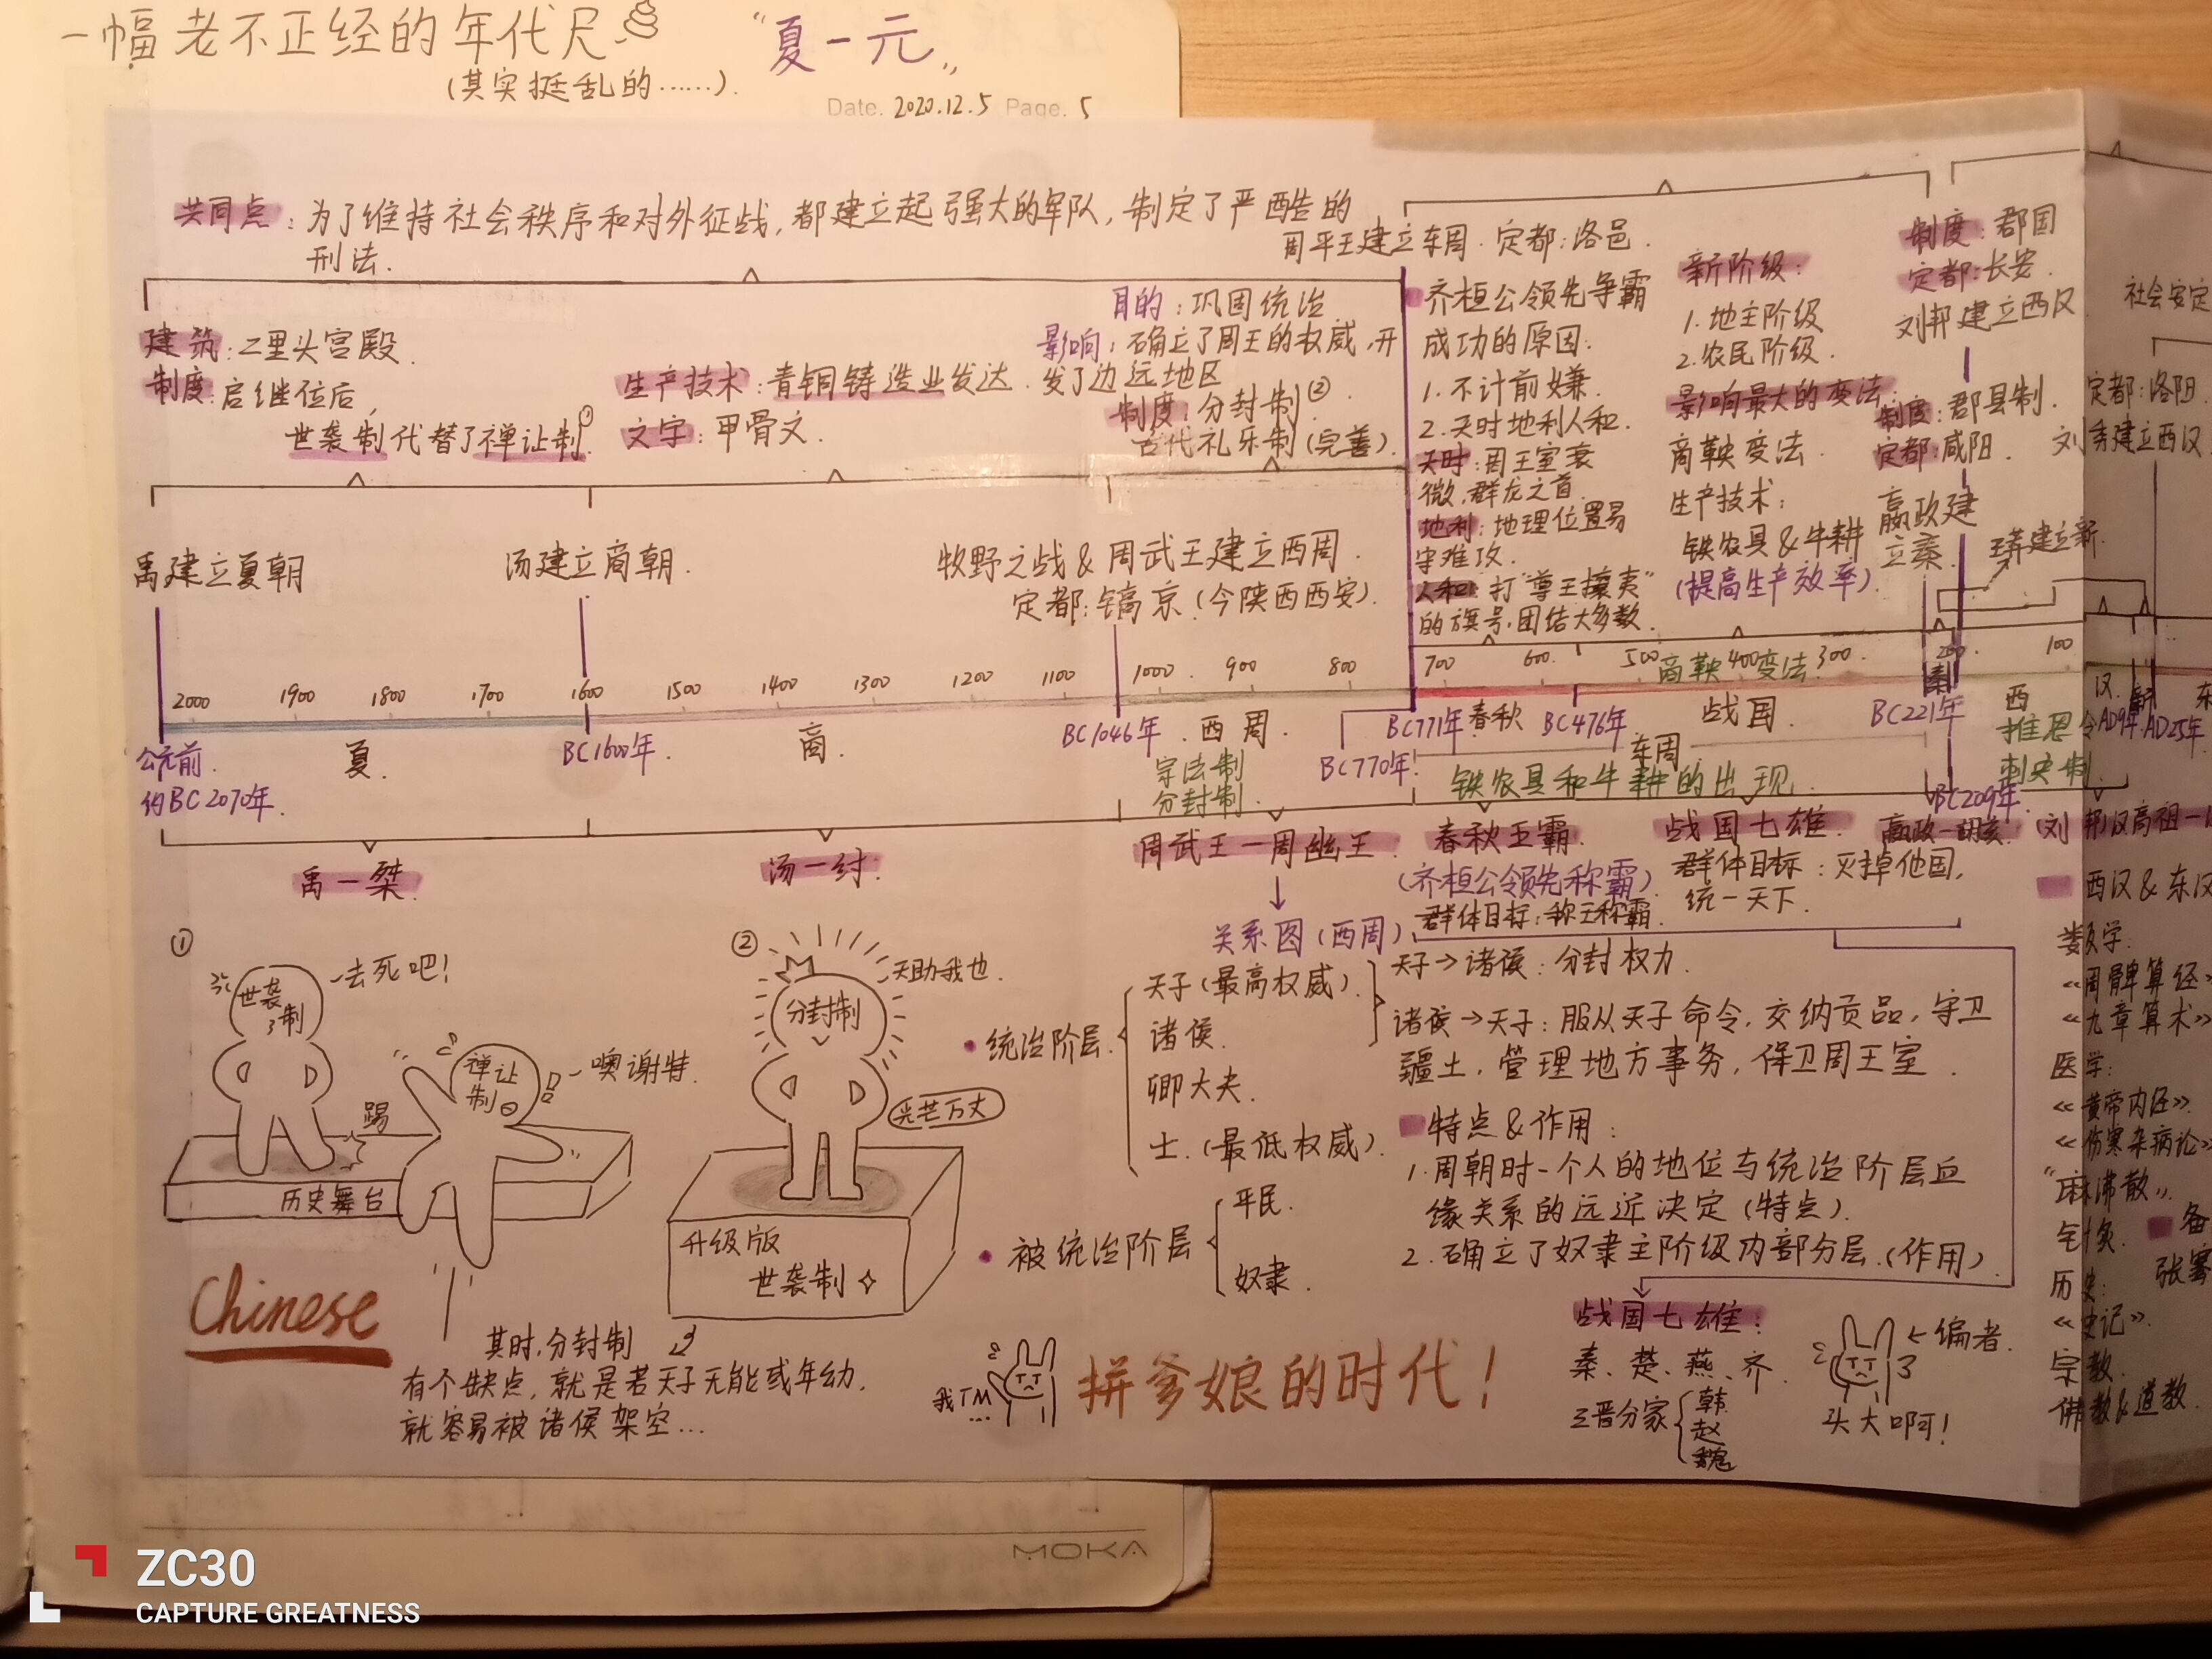 一幅老不正经的年代尺
"夏一元"
(其实挺乱的……).
Date. 2020.12.5 Page. 5
共同点:为了维持社会秩序和对外征战,都建立起强大的军队,制定了严酷的
刑法.
建筑:二里头宫殿.
制度:启继位后,
世袭制代替了禅让制.①
生产技术:青铜铸造业发达.
文字:甲骨文.
目的:巩固统治
影响:确立了周王的权威,开
发了边远地区
制度:分封制②.
古代礼乐制(完善).
周平王建立东周.定都:洛邑.
齐桓公领先争霸
成功的原因:
1.不计前嫌.
2.天时地利人和.
天时:周王室衰
微,群龙之首.
地利:地理位置易
守难攻.
人和:打"尊王攘夷"
的旗号,团结大多数.
新阶级:
1.地主阶级
2.农民阶级.
影响最大的变法:
商鞅变法.
生产技术:
铁农具&牛耕
(提高生产效率).
制度:郡国
定都:长安.
刘邦建立西汉
制度:郡县制.
定都:咸阳.
嬴政建
立秦.
王莽建立新.
社会安定
定都:洛阳.
刘秀建立西汉
禹建立夏朝
汤建立商朝.
牧野之战&周武王建立西周.
定都:镐京(今陕西西安).
2000 1900 1800 1700 1600 1500 1400 1300 1200 1100 1000 900 800 700 600. 500 400 300 200 100
商鞅变法
公元前.
约BC2070年.
夏.
BC1600年.
商.
BC1046年.
西周.
宗法制
分封制.
BC770年.
BC771年
春秋
BC476年.
战国.
东周
铁农具和牛耕的出现.
BC221年
秦
BC209年
西
汉.
新
东
推恩令
刺史制.
AD9年.
AD25年.
禹一桀
汤一纣.
周武王一周幽王
春秋五霸
(齐桓公领先称霸)
群体目标:称王称霸.
战国七雄.
群体目标:灭掉他国,
统一天下.
嬴政一胡亥
刘邦汉高祖一
西汉&东汉
①
世袭制
一去死吧!
踢
禅让制
一噢谢特.
历史舞台
②
分封制
天助我也.
光芒万丈
升级版
世袭制
Chinese
其时,分封制
有个缺点,就是若天子无能或年幼,
就容易被诸侯架空…
关系图(西周)
统治阶层.
天子(最高权威).
诸侯.
卿大夫.
士.(最低权威).
被统治阶层
平民.
奴隶.
天子→诸侯:分封权力.
诸侯→天子:服从天子命令,交纳贡品,守卫
疆土,管理地方事务,保卫周王室.
特点&作用:
1.周朝时一个人的地位与统治阶层血
缘关系的远近决定(特点).
2.确立了奴隶主阶级内部分层.(作用).
我TM
…
拼爹娘的时代!
战国七雄:
秦、楚、燕、齐、
三晋分家
韩
赵
魏
←编者.
头大啊!
数学.
《周髀算经》
《九章算术》
医学:
《黄帝内经》.
《伤寒杂病论》
"麻沸散".
针灸.
张骞
历史:
《史记》.
宗教.
佛教&道教.
MOKA
ZC30
CAPTURE GREATNESS